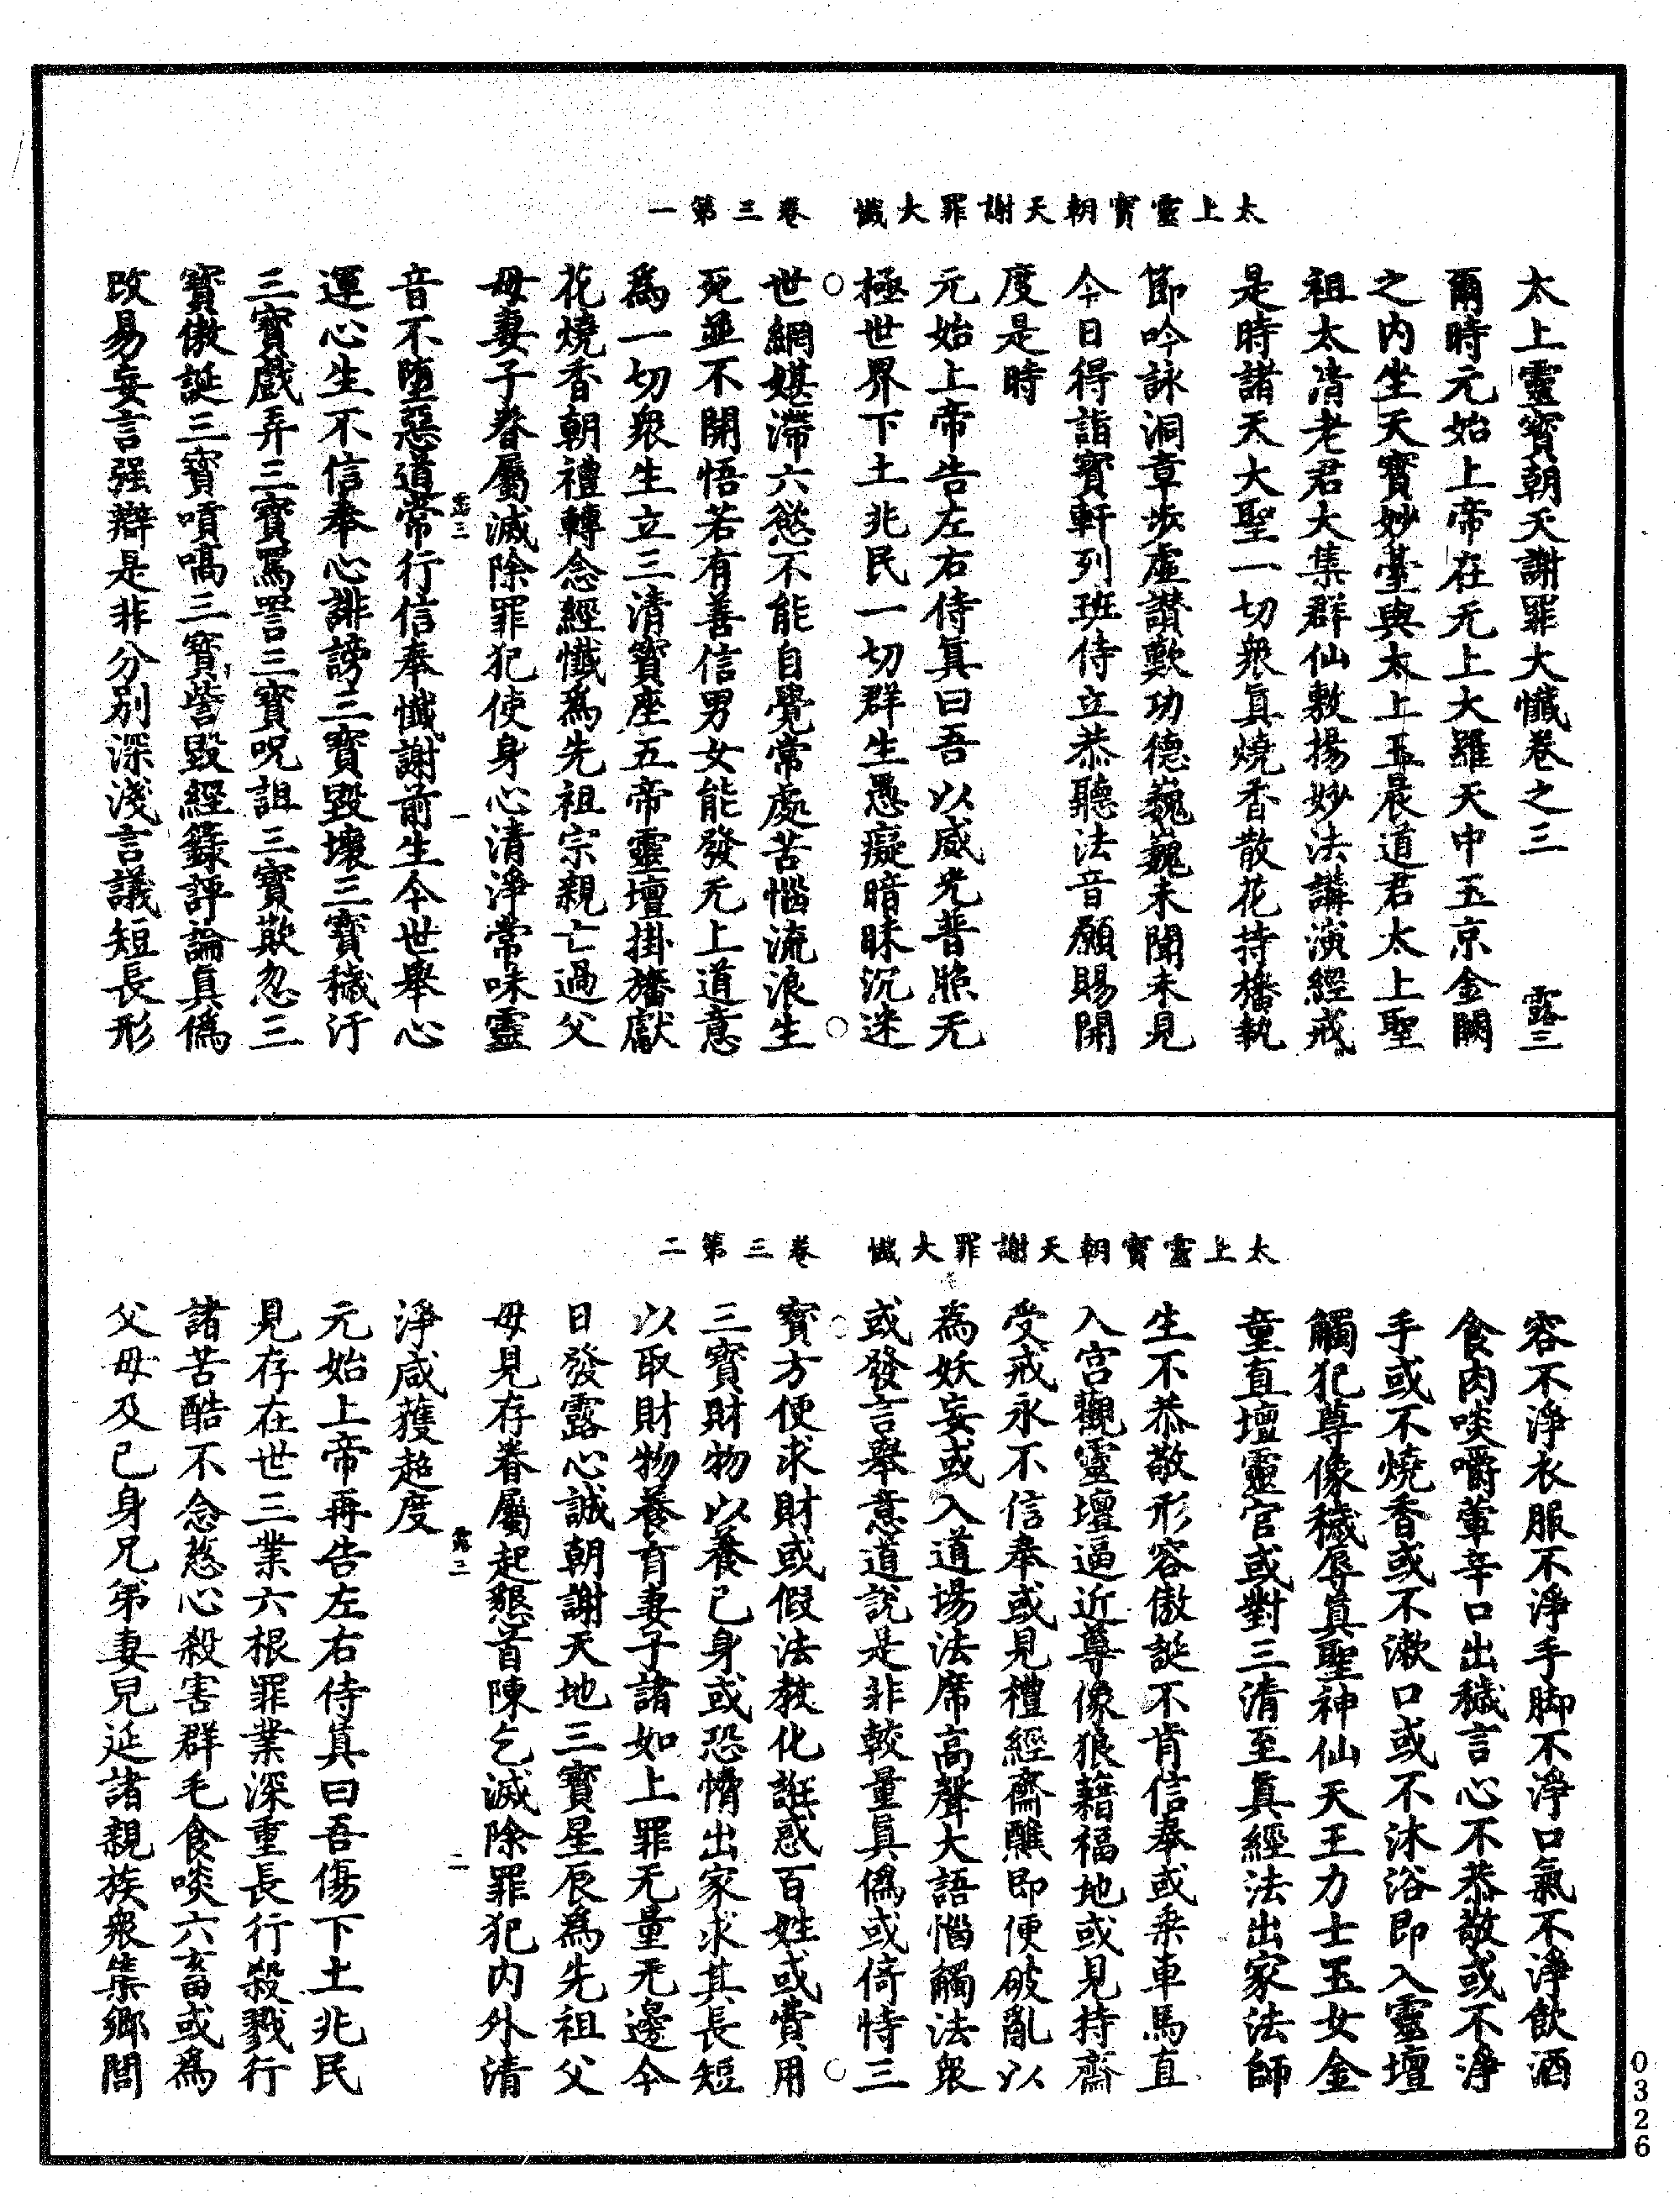 太上靈寶朝天謝罪大懺　卷三第一
太上靈寶朝天謝罪大懺卷之三　露三
爾時元始上帝在无上大羅天中玉京金闕
之内坐天寶妙臺與太上玉晨道君太上聖
祖太清老君大集群仙敷揚妙法講演經戒
是時諸天大聖一切衆真燒香散花持旛執
節吟詠洞章步虛讚歎功德巍巍未聞未見
今日得詣寶軒列班侍立恭聽法音願賜開
度是時
元始上帝告左右侍真曰吾以威光普照无
極世界下土兆民一切群生愚癡暗昧沉迷
世網媒滯六慾不能自覺常處苦惱流浪生
死並不開悟若有善信男女能發无上道意
爲一切衆生立三清寶座五帝靈壇掛旛獻
花燒香朝禮轉念經懺爲先祖宗親亡過父
母妻子眷屬滅除罪犯使身心清淨常味靈
音不墮惡道常行信奉懺謝前生今世舉心
露三　一
運心生不信奉心誹謗三寶毀壞三寶穢汙
三寶戲弄三寶罵詈三寶呪詛三寶欺忽三
寶傲誕三寶嗔嗃三寶訾毀經籙評論真僞
改易妄言强辯是非分别深淺言議短長形
太上靈寶朝天謝罪大懺　卷三第二
容不淨衣服不淨手脚不淨口氣不淨飲酒
食肉啖嚼葷辛口出穢言心不恭敬或不淨
手或不燒香或不漱口或不沐浴即入靈壇
觸犯尊像穢辱真聖神仙天王力士玉女金
童直壇靈官或對三清至真經法出家法師
生不恭敬形容傲誕不肯信奉或乘車馬直
入宫觀靈壇逼近尊像狼藉福地或見持齋
受戒永不信奉或見禮經齋醮即便破亂以
為妖妄或入道場法席高聲大語惱觸法衆
或發言舉意道説是非較量真僞或倚恃三
寶方便求財或假法教化誑惑百姓或費用
三寶財物以養己身或恐懦出家求其長短
以取財物養育妻子諸如上罪无量无邊今
日發露心誠朝謝天地三寶星辰為先祖父
母見存眷屬起懇首陳乞滅除罪犯内外清
淨咸獲超度
露三　二
元始上帝再告左右侍真曰吾傷下土兆民
見存在世三業六根罪業深重長行殺戮行
諸苦酷不念慈心殺害群毛食啖六畜或爲
父母及己身兄弟妻兒延諸親族衆集鄉閭
0326